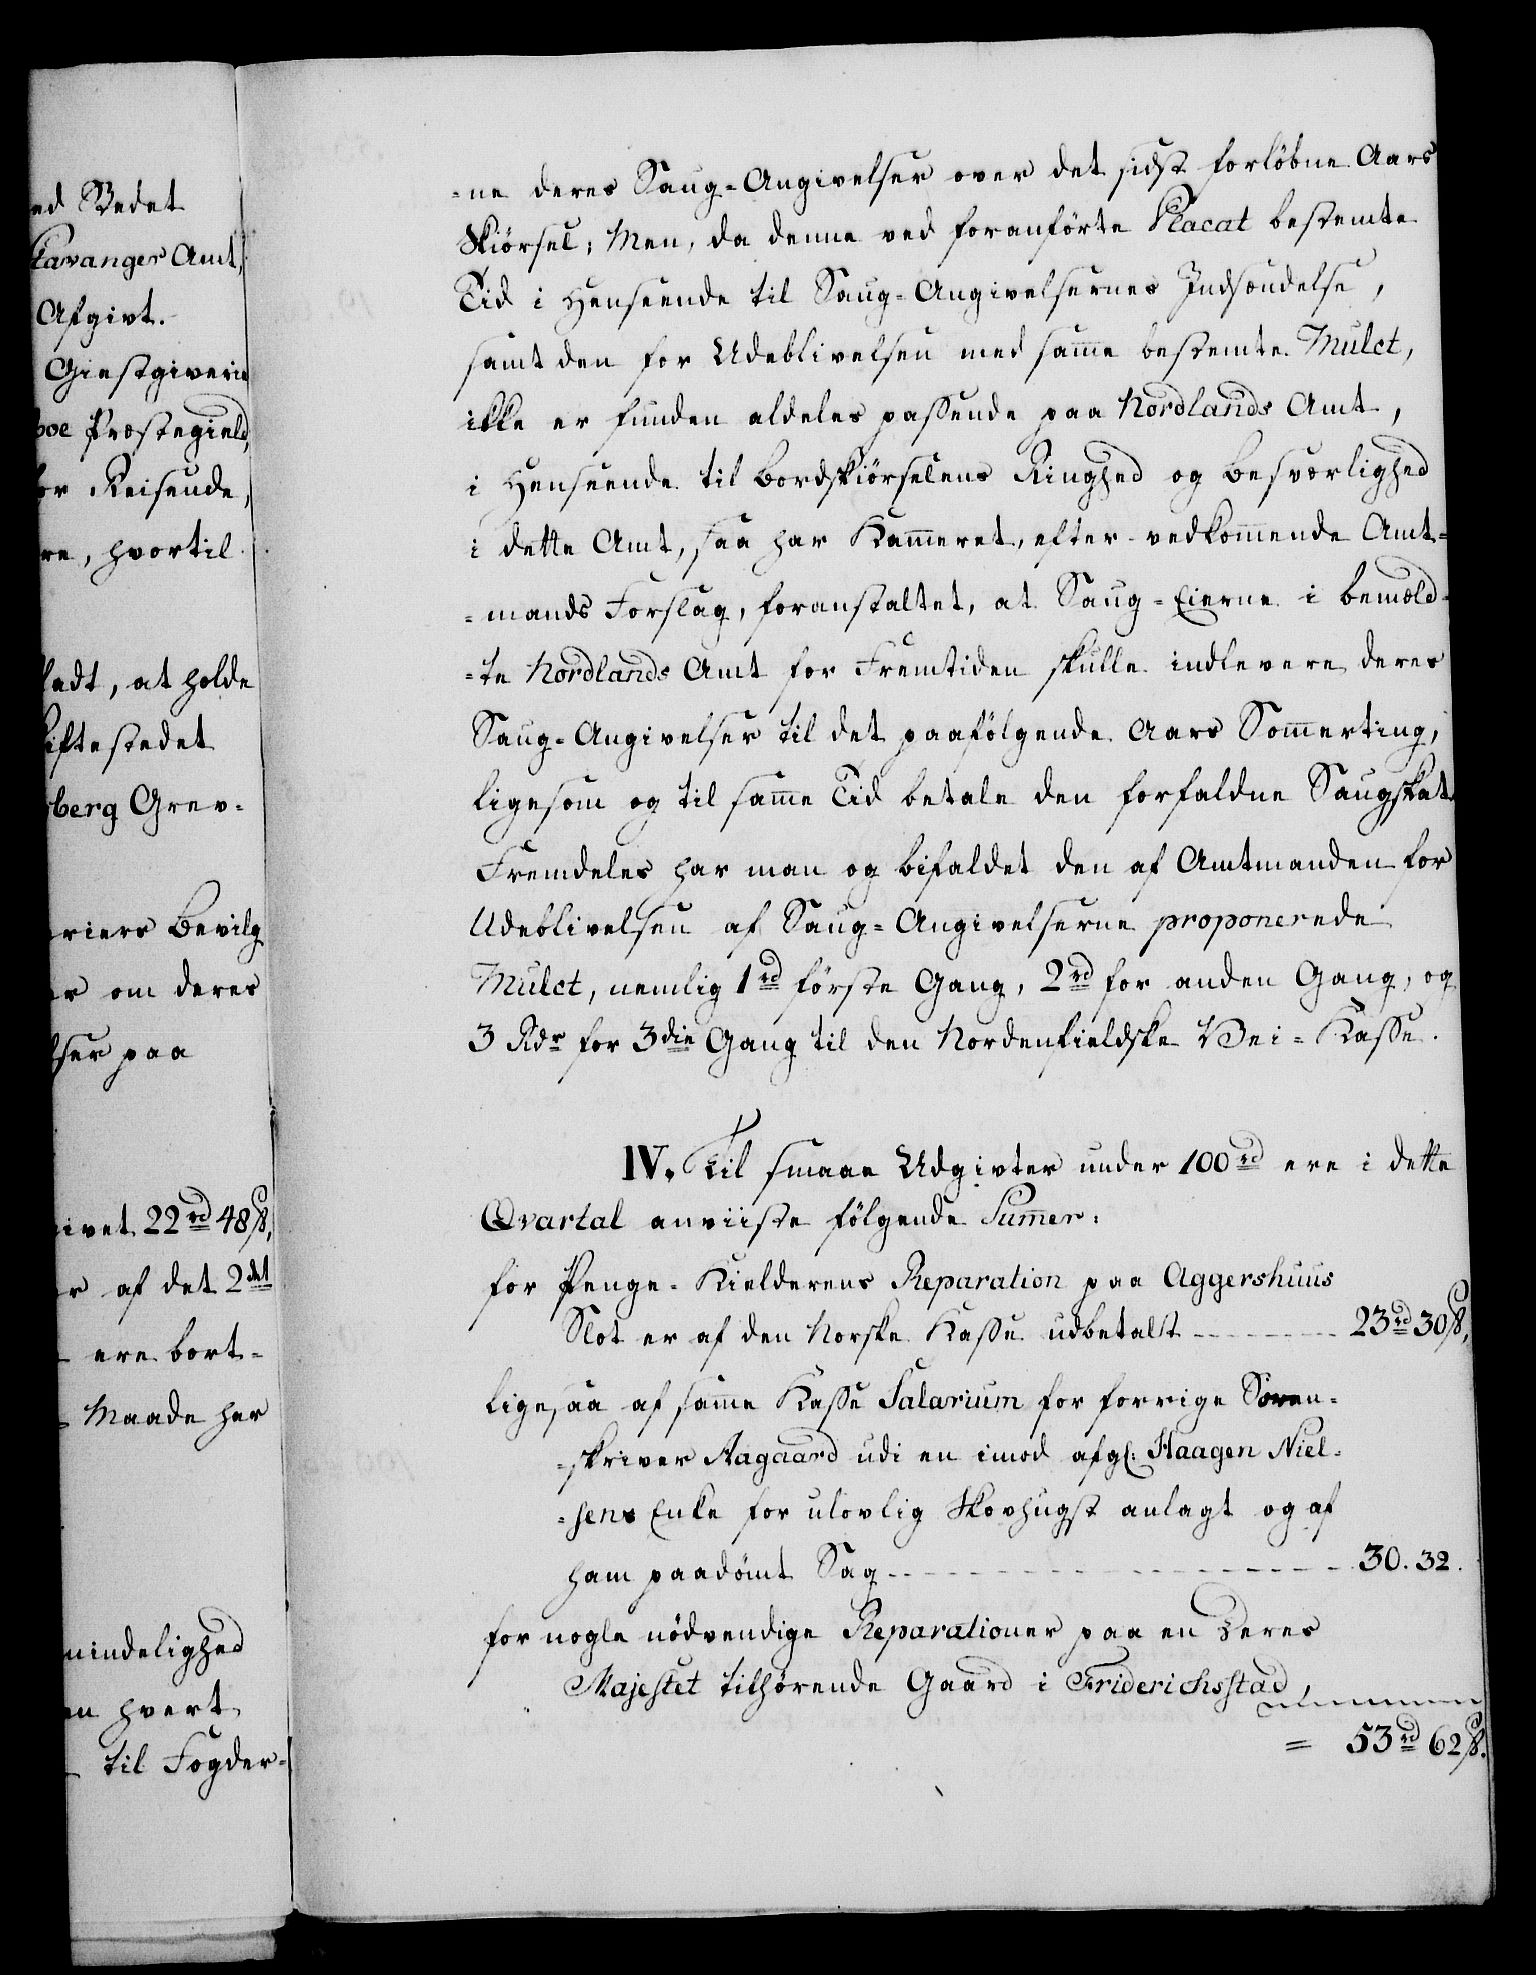 ed Stedet
tavanger Amt,
Afgivt.
Giestgiverie
boe Præstegield,
or Reisende,
re, hvortil
ladt, at holde
iftestedet
sberg Grev-
riers Bevilg
r om deres
lser paa
ivet 22rd 48ß,
r af det 2det
ere bort-
Maade har
mindelighed
en hvert
til Fogder-
-ne deres Saug-Angivelser over det sidst forløbne Aars
Skiørsel; Men, da denne ved foranførte Placat bestemte
Tid i Henseende til Saug-Angivelsernes Indsendelse,
samt den for Udeblivelsen med samme bestemte Mulct,
ikke er funden aldeles passende paa Nordlands Amt,
i Henseende til Bordskiørselens Ringhed og Besværlighed
i dette Amt, saa har Kammeret, efter vedkommende Amt-
-mands Forslag, foranstaltet, at Saug-Eierne i bemeld-
-te Nordlands Amt for Fremtiden skulle indlevere deres
Saug-Angivelser til det paafølgende Aars Sommerting,
ligesom og til samme Tid betale den forfaldne Saugskat.
Fremdeles har man og bifaldet den af Amtmanden for
Udeblivelsen af Saug-Angivelserne proponerede
Mulct, nemlig 1rd første Gang, 2rd for anden Gang, og
3 Rdr for 3die Gang til den Nordenfieldske Vei-Kasse.
IV. Til smaae Udgivter under 100rd ere i dette
Qvartal anviiste følgende Summer:
for Penge-Kielderens Reparation paa Aggershuus
Slot er af den Norske Kasse udbetalt - - - - - 23rd 30ß,
ligesaa af samme Kasse Salarium for forrige Soren-
-skriver Aagaard udi en imod afgl: Haagen Niel-
-sens Enke for ulovlig Skovhugst anlagt og af
ham paadømt Sag - - - - - - - - - - 30. 32.
for nogle nødvendige Reparationer paa en Deres
Majestet tilhørende Gaard i Friderichsstad,
= 53rd 62ß.